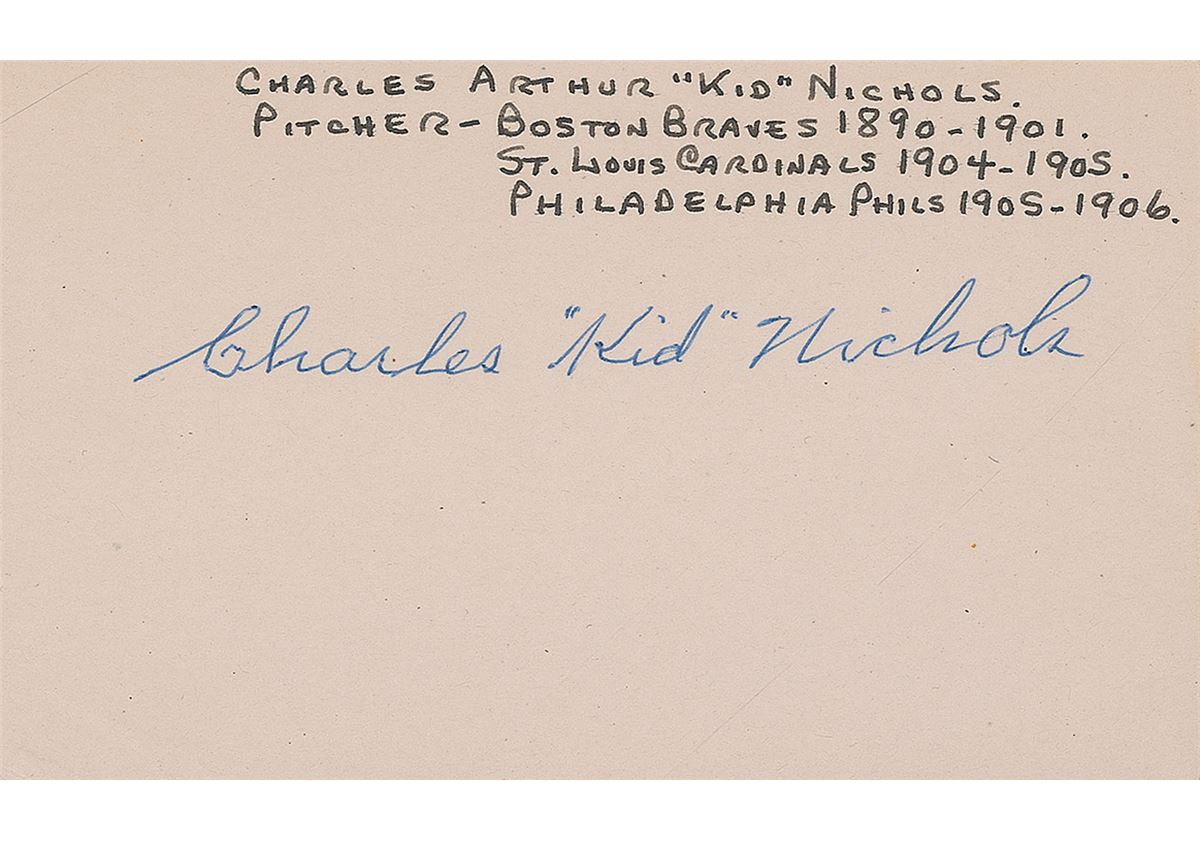 CHARLES ARTHUR "KID" NICHOLS.
PITCHER - BOSTON BRAVES 1890-1901.
ST. LOUIS CARDINALS 1904-1905.
PHILADELPHIA PHILS 1905-1906.
Charles "Kid" Nichols